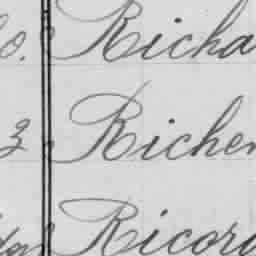 o. Richa
3 Richer
Ricor